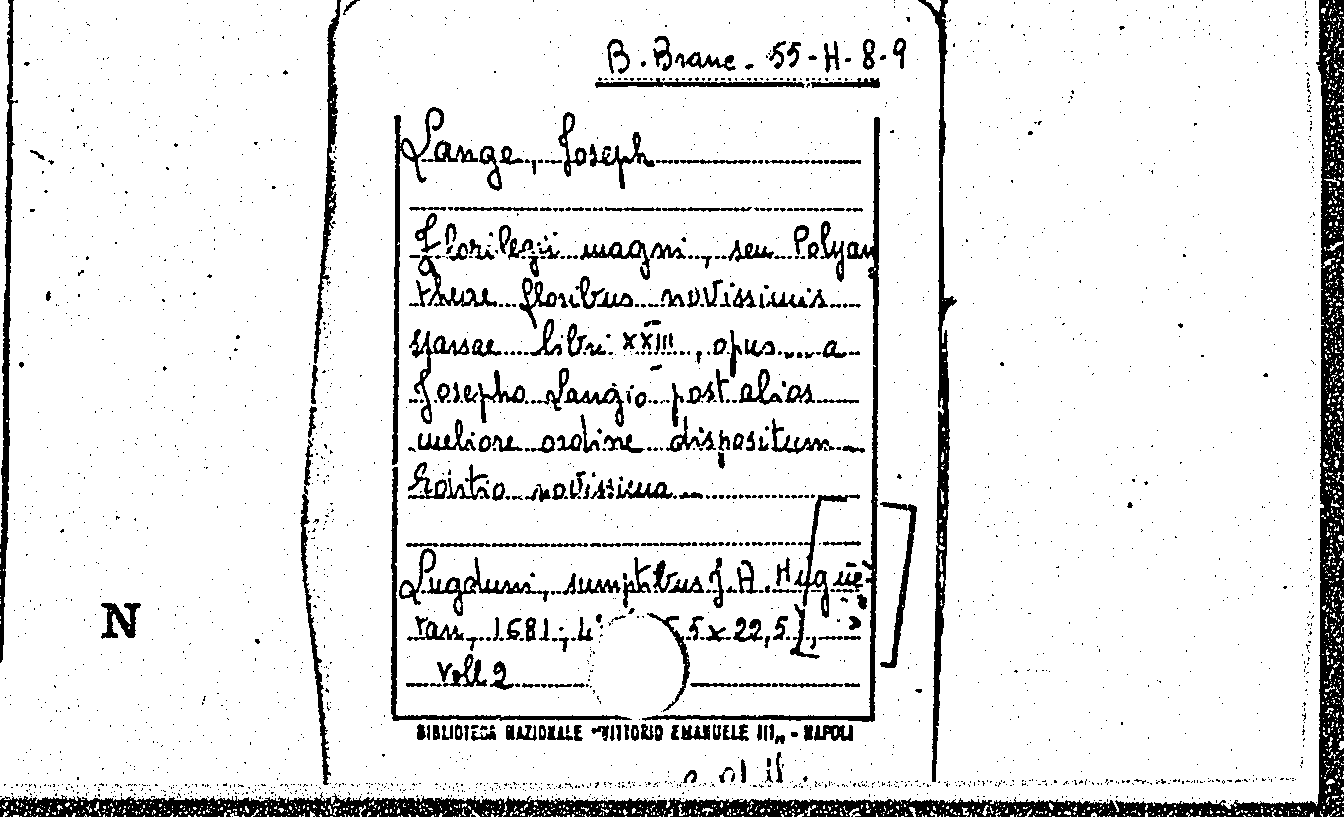 B. Branc. 55-H-8-9
Lange, Joseph
Florilegii magni, seu Polyan
theae floribus novissimis
sparsae libri XXIII, opus... a
Josepho Langio post alios
meliore ordine dispositum...
Editio novissima...
Lugduni, sumptibus J. A. Hugue-
tan, 1681; 4° 5,5 x 22,5),
voll 2
N
BIBLIOTECA NAZIONALE "VITTORIO EMANUELE III" - NAPOLI